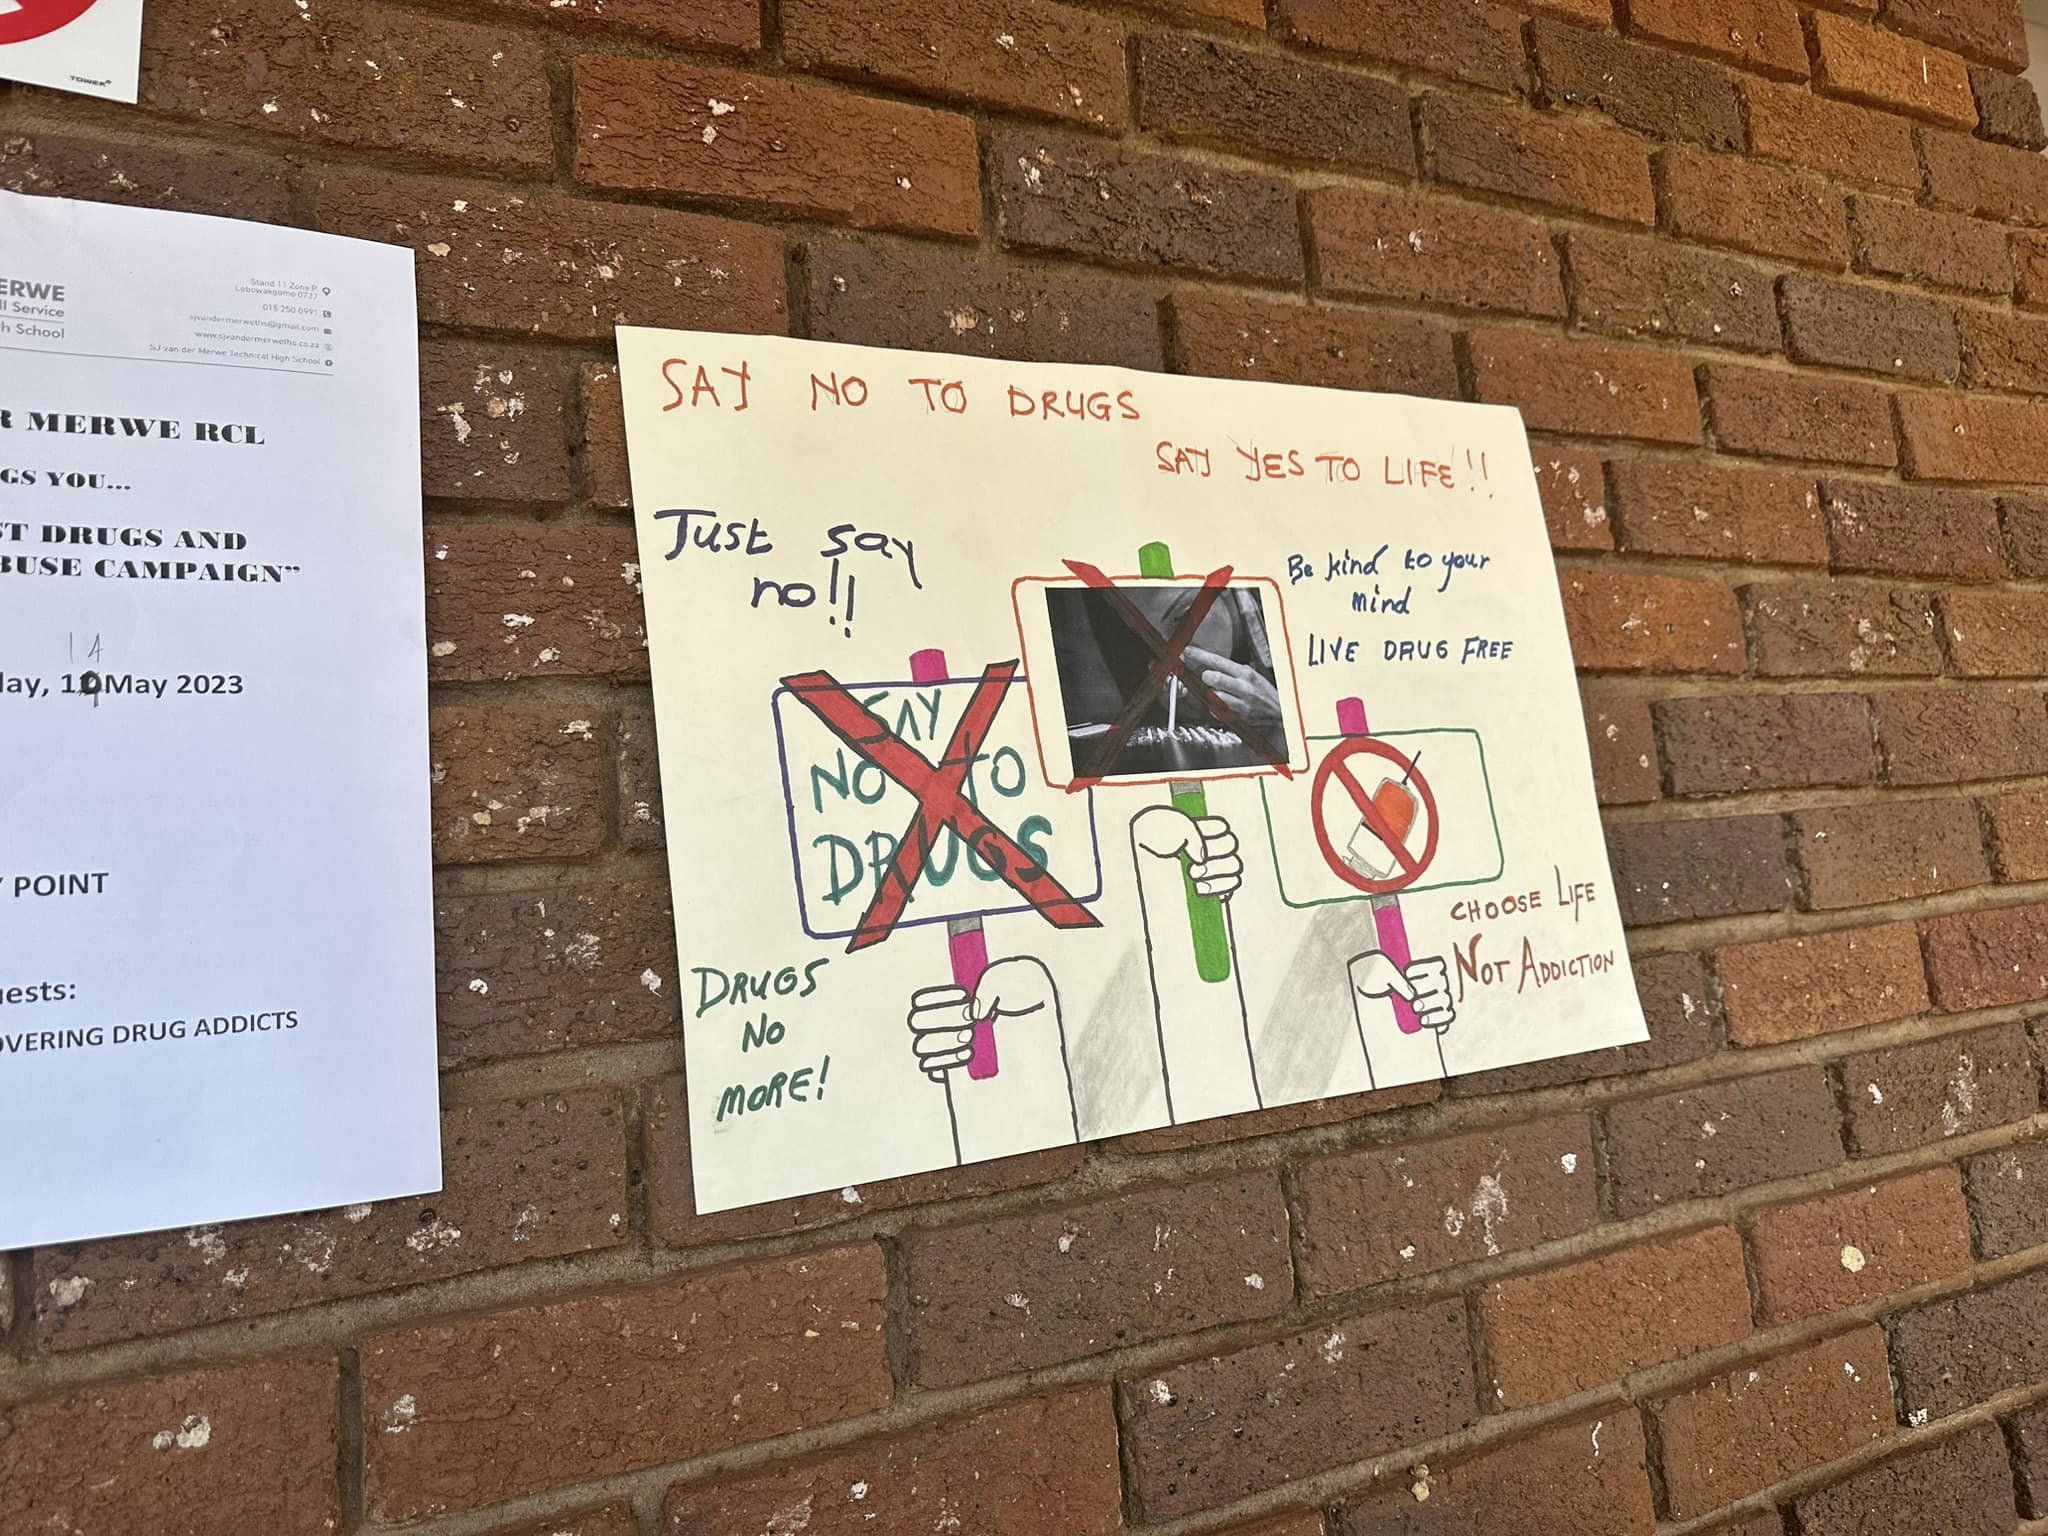 TOWER
ERWE
ll Service
h School
Stand 11 Zone P
Lebowakgomo 0737
015 250 0991
sjvandermerweths@gmail.com
www.sjvandermerweths.co.za
SJ van der Merwe Technical High School
R MERWE RCL
GS YOU...
ST DRUGS AND
BUSE CAMPAIGN”
14
day, 19 May 2023
Y POINT
uests:
OVERING DRUG ADDICTS
SAY NO TO DRUGS
SAY YES TO LIFE!!
Just say
no!!
Be kind to your
mind
LIVE DRUG FREE
SAY
NO TO
DRUGS
CHOOSE LIFE
NOT ADDICTION
DRUGS
NO
MORE!